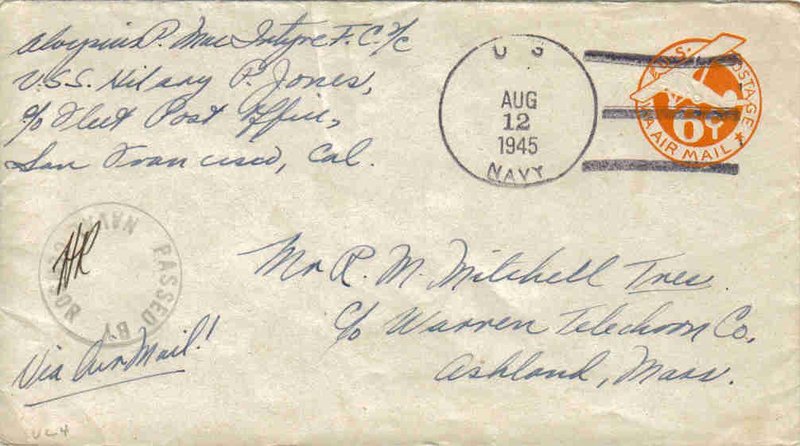 Aloysius P. Mac Intyre F.C. 3/c
U.S.S. Hilary P. Jones,
c/o Fleet Post Office,
San Francisco, Cal.
U S
AUG
12
1945
NAVY
U.S. POSTAGE
VIA AIR MAIL
6
PASSED BY NAVAL CENSOR
Mr R. M. Mitchell Tres.
c/o Warren Telechron Co.
Ashland, Mass.
Via Air Mail!
UC4